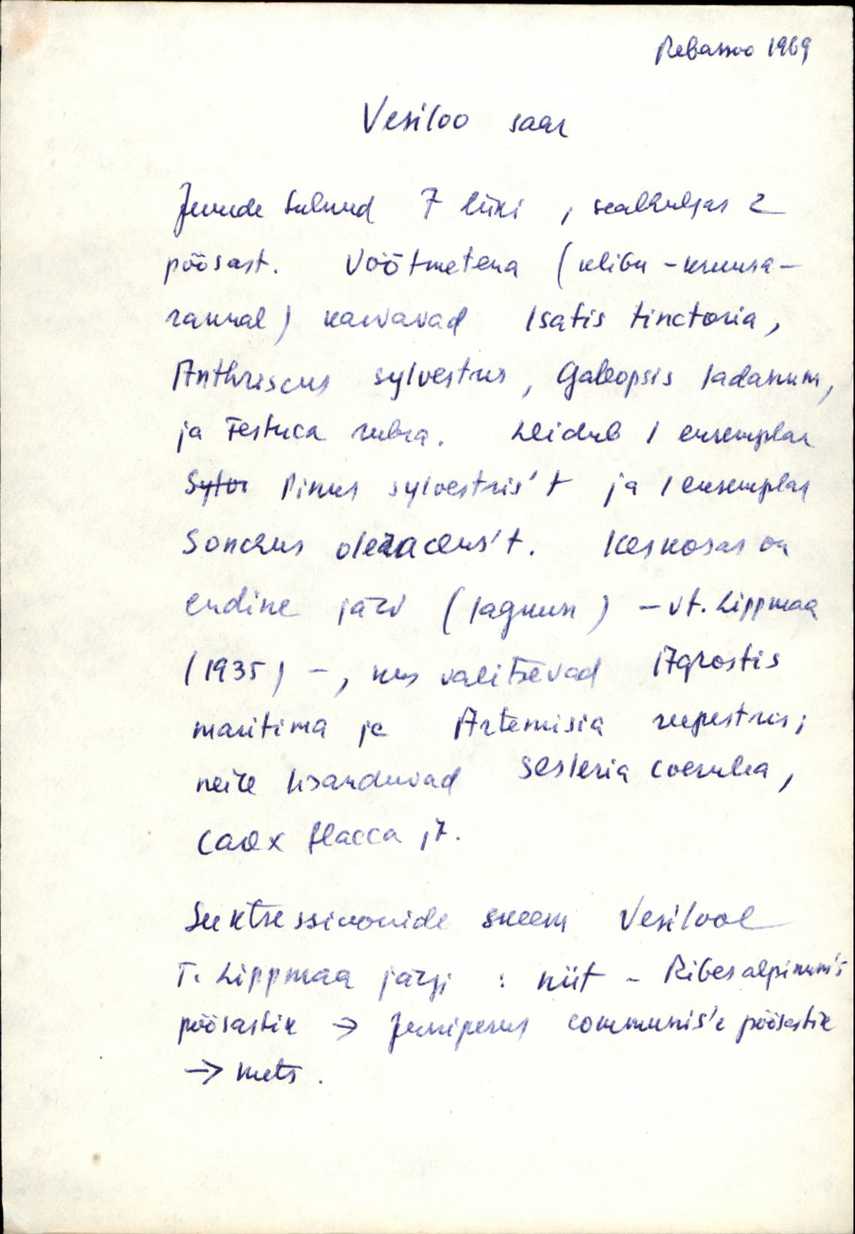 Rebassoo 1969
Vesiloo saar
Juurde tulnud 7 liiki, sealhulgas 2
põõsast. Vöötmetena (klibu-kruusa-
rannal) kasvavad Isatis tinctoria,
Anthriscus sylvestris, Galeopsis ladanum,
ja Festuca rubra. Leidub 1 eksemplar
Sylv Pinus sylvestris't ja 1 eksemplar
Sonchus oleraceus't. Keskosas on
endine järv (laguun) - vt. Lippmaa
(1935) -, kus valitsevad Agrostis
maritima ja Artemisia rupestris;
neile lisanduvad Sesleria coerulea,
Carex flacca jt.
Suktsessioonide skeem Vesilool
T. Lippmaa järgi : niit - Ribes alpinum'i
põõsastik → Juniperus communis'e põõsastik
→ mets.